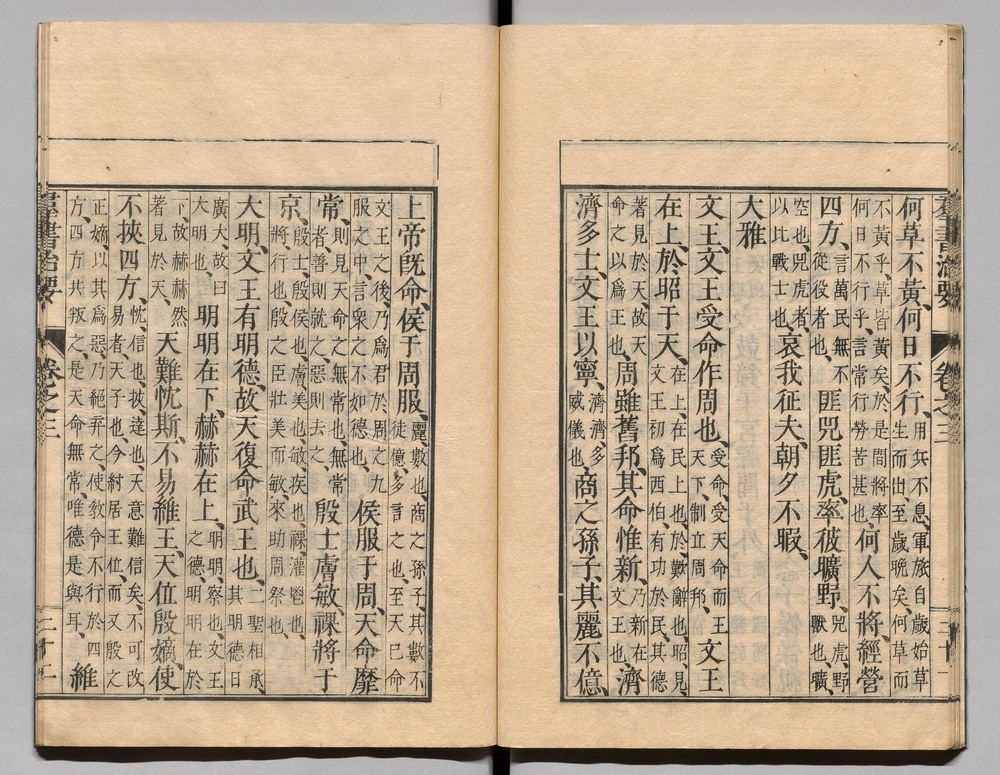 羣書治要 卷之三 二十一
何草不黃、何日不行、用兵不息、軍旅自歲始草生而出、至歲晚矣、何草而
不黃乎、草皆黃矣、於是間將率何日不行乎、言常行勞苦甚也、何人不將、經營
四方、言萬民無不從役者也、匪兕匪虎、率彼曠野、兕虎、野獸也、曠、
空也、兕虎者、以比戰士也、哀我征夫、朝夕不暇、
大雅
文王、文王受命作周也、受命、受天命而王天下、制立周邦、文王
在上、於昭于天、在上、在民上也、於、歎辭也、昭、見、文王初爲西伯、有功於民、其德
著見於天、故天命之以爲王也、周雖舊邦、其命惟新、乃新在文王也、濟
濟多士、文王以寧、濟濟、多威儀也、商之孫子、其麗不億、
上帝旣命、侯于周服、麗、數也、商之孫子、其數不徒億、多言之也、至天已命
文王之後、乃爲君於周之九服之中、言衆之不如德也、侯服于周、天命靡
常、則見天命之無常也、無常者善則就之、惡則去之、殷士膚敏、祼將于
京、殷士、殷侯也、膚、美也、敏、疾也、祼、灌鬯也、將、行也、殷之臣壯美而敏、來助周祭也、
大明、文王有明德、故天復命武王也、二聖相承、其明德日
廣大、故曰大明也、明明在下、赫赫在上、明明、察也、文王之德、明明在於
下、故赫赫然著見於天、天難忱斯、不易維王、天位殷嫡、使
不挾四方、忱、信也、挾、達也、天意難信矣、不可改易者天子也、今紂居王位、而又殷之
正嫡、以其爲惡、乃絕弃之、使教令不行於四方、四方共叛之、是天命無常、唯德是與耳、維
羣書治要 卷之三 二十二